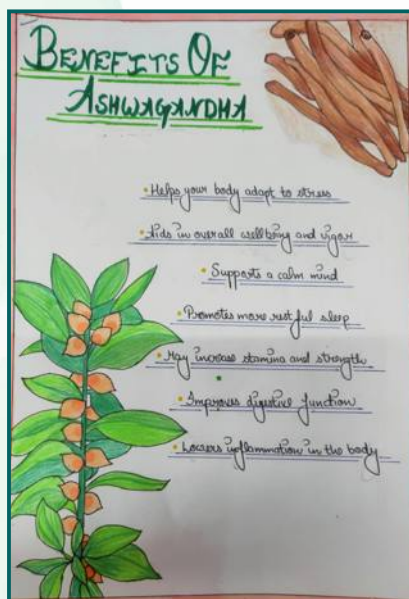 BENEFITS OF
ASHWAGANDHA
• Helps your body adapt to stress
• Aids in overall wellbeing and vigor
• Supports a calm mind
• Promotes more restful sleep
• May increase stamina and strength
• Improves digestive function
• Lowers inflammation in the body